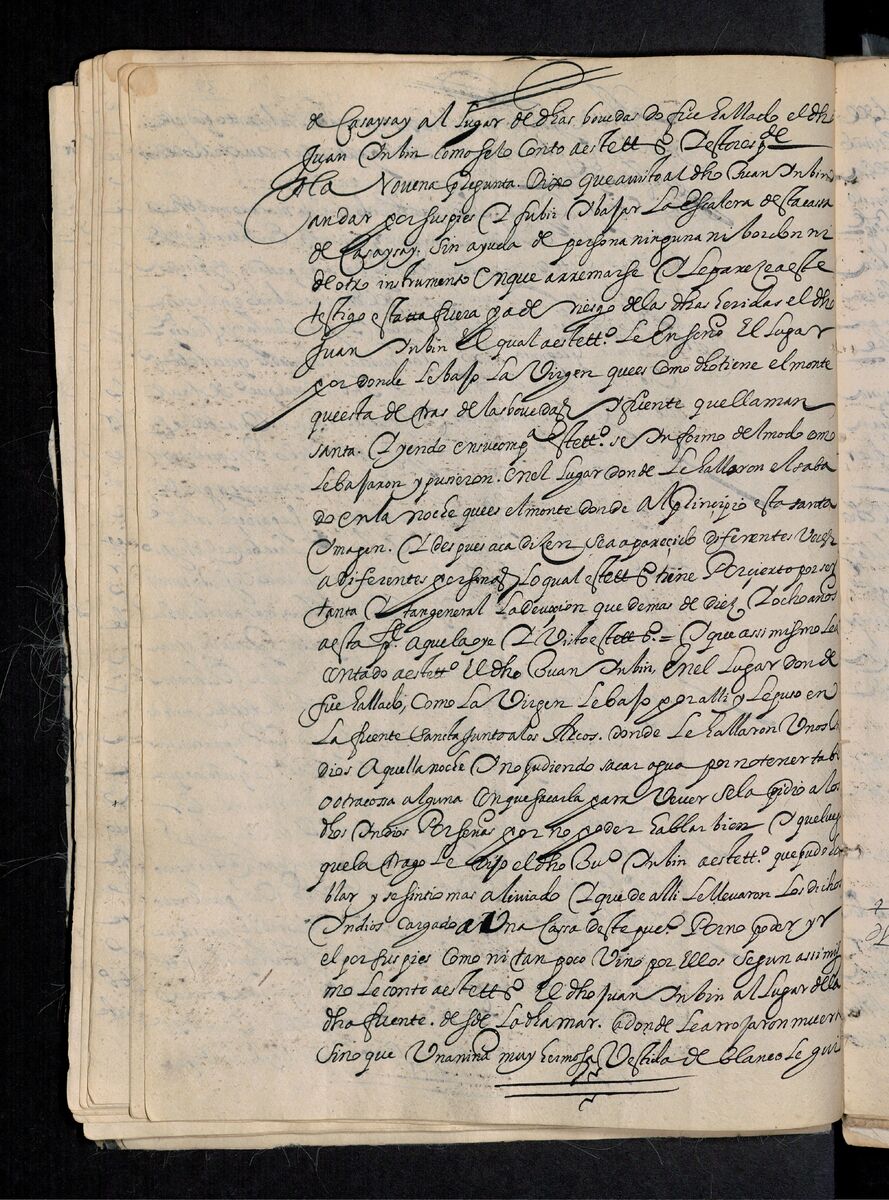 de Casaysay al lugar de dhas bouedas do fue hallado el dho
Juan Imbin como se lo conto a este tt.º y esto resp.de
A la Novena pregunta. Dixo que a visto al dho Juan Imbin
andar por sus pies y subir y bajar la escalera de esta cassa
de Casaysay. sin ayuda de persona ninguna ni bordon ni
de otro instrumento en que arrimarse y le pareze a este
testigo esta fuera ya de riesgo de las dhas heridas el dho
Juan Imbin el qual a este tt.º le enseño el lugar
por donde le bajo la Virgen que es como dho tiene el monte
que esta de tras de las bouedas y fuente que llaman
santa. y yendo en su comp.a este tt.º se informo del modo como
le bajaron y pusieron. en el lugar donde le hallaron el saba
do en la noche que es el monte donde al principio esta santa
Imagen. y despues aca dizen se a aparecido diferentes Vezes
a diferentes personas lo qual este tt.º tiene por cierto por ser
tanta y tan general la devocion que de mas de diez y ocho años
a esta p.te aquel a oye y Visto este tt.º = y que assi mismo le a
contado a este tt.º el dho Juan Imbin, en el lugar donde
fue hallado, como la Virgen le bajo por alli y le puso en
la fuente Sancta junto a los Arcos. donde le hallaron Unos In
dios aquella noche y no pudiendo sacar agua por no tener tabo
o otra cossa alguna con que sacarla para Vever se la pidio a los
dhos Indios por señas por no poder hablar bien y que luego
que la trago le dijo el dho Ju.º Imbin a este tt.º que pudo ha
blar y se sintio mas aliviado y que de alli le llevaron los dichos
Indios cargado a Una Cassa deste pue.º por no poder yr
el por sus pies como ni tan poco Vino por ellos segun assimis
mo le conto a este tt.º el dho Juan Imbin al lugar de la
dha fuente. desde la dha mar. a donde le arrojaron muerto
sino que Una niña muy hermosa Vestida de blanco le gui